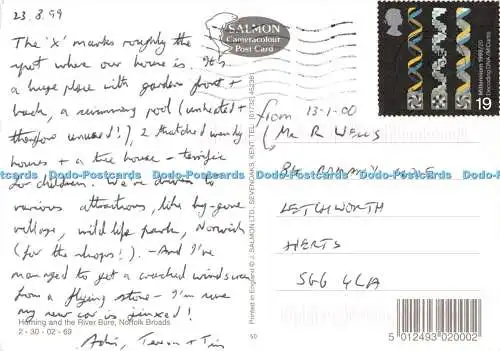 23.8.99
The 'X' marks roughly the
spot where our home is. It's
a huge place with garden front +
back, a swimming pool (unheated +
therefore unused!), 2 thatched wendy
houses + a tree house - terrific
for children. We've driven to
various attractions, like by-gone
village, wildlife park, Norwich
(for the shops!). - And I've
managed to get a cracked windscreen
from a flying stone - I'm sure
my new car is jinxed!
Horning and the River Bure, Norfolk Broads
2 - 30 - 02 - 69
Tim
SALMON
Cameracolour
Post Card
Printed in England © J. SALMON LTD., SEVENOAKS, KENT. TEL: (01732) 452381
Millennium 1999/20
Decoding DNA
19
from 13-1-00
Mr R Wells
LETCHWORTH
HERTS
SG6 4LA
50
5 012493 020002
Dodo-Postcards Dodo-Postcards Dodo-Postcards Dodo-Postcards